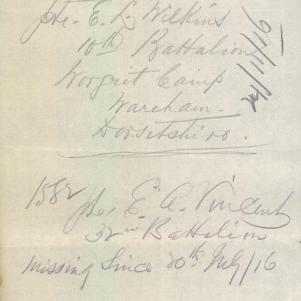 Pte. E. L. Wilkins
10th Battalion
Worgret Camp
Wareham
Dorsetshire.
24/11/16
1582 Pte. E. A. Vincent
32nd Battalion
Missing since 20th July/16